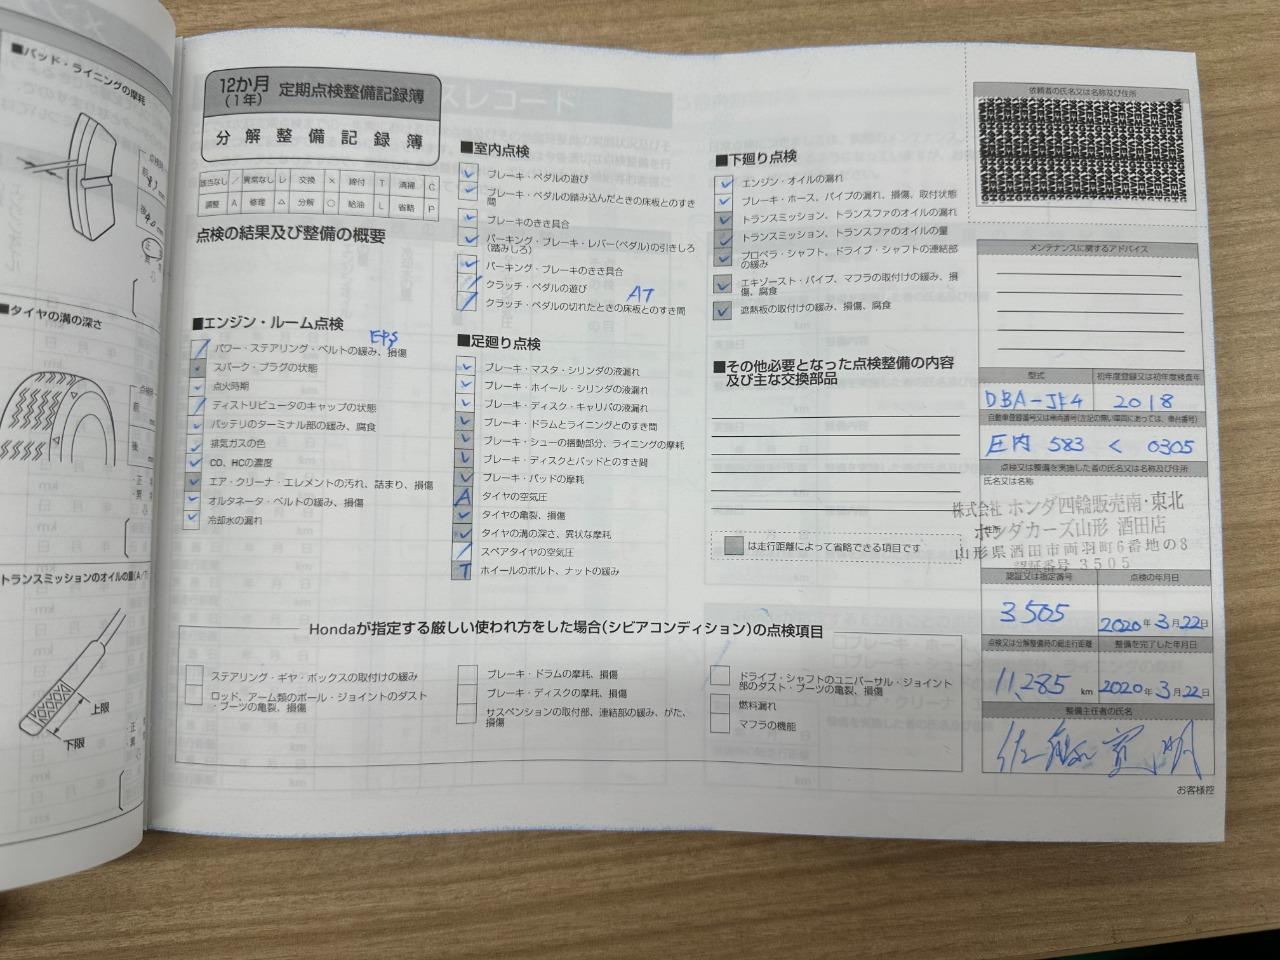 ■パッド・ライニングの摩耗
■タイヤの溝の深さ
トランスミッションのオイルの量(A/T
上限
下限
12か月
(1年)
定期点検整備記録簿
分解整備記録簿
該当なし / 異常なし レ 交換 × 締付 T 清掃 C
調整 A 修理 △ 分解 ○ 給油 L 省略 P
点検の結果及び整備の概要
■エンジン・ルーム点検
EPS
パワー・ステアリング・ベルトの緩み、損傷
スパーク・プラグの状態
点火時期
ディストリビュータのキャップの状態
バッテリのターミナル部の緩み、腐食
排気ガスの色
CO、HCの濃度
エア・クリーナ・エレメントの汚れ、詰まり、損傷
オルタネータ・ベルトの緩み、損傷
冷却水の漏れ
■室内点検
ブレーキ・ペダルの遊び
ブレーキ・ペダルの踏み込んだときの床板とのすき
間
ブレーキのきき具合
パーキング・ブレーキ・レバー(ペダル)の引きしろ
(踏みしろ)
パーキング・ブレーキのきき具合
クラッチ・ペダルの遊び
AT
クラッチ・ペダルの切れたときの床板とのすき間
■足廻り点検
ブレーキ・マスタ・シリンダの液漏れ
ブレーキ・ホイール・シリンダの液漏れ
ブレーキ・ディスク・キャリパの液漏れ
ブレーキ・ドラムとライニングとのすき間
ブレーキ・シューの摺動部分、ライニングの摩耗
ブレーキ・ディスクとパッドとのすき間
ブレーキ・パッドの摩耗
A タイヤの空気圧
タイヤの亀裂、損傷
タイヤの溝の深さ、異状な摩耗
スペアタイヤの空気圧
T ホイールのボルト、ナットの緩み
■下廻り点検
エンジン・オイルの漏れ
ブレーキ・ホース、パイプの漏れ、損傷、取付状態
トランスミッション、トランスファのオイルの漏れ
トランスミッション、トランスファのオイルの量
プロペラ・シャフト、ドライブ・シャフトの連結部
の緩み
エキゾースト・パイプ、マフラの取付けの緩み、損
傷、腐食
遮熱板の取付けの緩み、損傷、腐食
■その他必要となった点検整備の内容
及び主な交換部品
は走行距離によって省略できる項目です
Hondaが指定する厳しい使われ方をした場合(シビアコンディション)の点検項目
ステアリング・ギヤ・ボックスの取付けの緩み
ロッド、アーム類のボール・ジョイントのダスト
・ブーツの亀裂、損傷
ブレーキ・ドラムの摩耗、損傷
ブレーキ・ディスクの摩耗、損傷
サスペンションの取付部、連結部の緩み、がた、
損傷
ドライブ・シャフトのユニバーサル・ジョイント
部のダスト・ブーツの亀裂、損傷
燃料漏れ
マフラの機能
依頼者の氏名又は名称及び住所
メンテナンスに関するアドバイス
型式 初年度登録又は初年度検査年
DBA-JF4 2018
自動車登録番号又は車両番号(左記の無い車両にあっては、車台番号)
庄内 583 く 0305
点検又は整備を実施した者の氏名又は名称及び住所
氏名又は名称
株式会社 ホンダ四輪販売南・東北
ホンダカーズ山形 酒田店
住所
山形県酒田市両羽町6番地の8
認証番号 3505
認証又は指定番号 点検の年月日
3505 2020年3月22日
点検又は分解整備時の総走行距離 整備を完了した年月日
11,285 km 2020年3月22日
整備主任者の氏名
お客様控